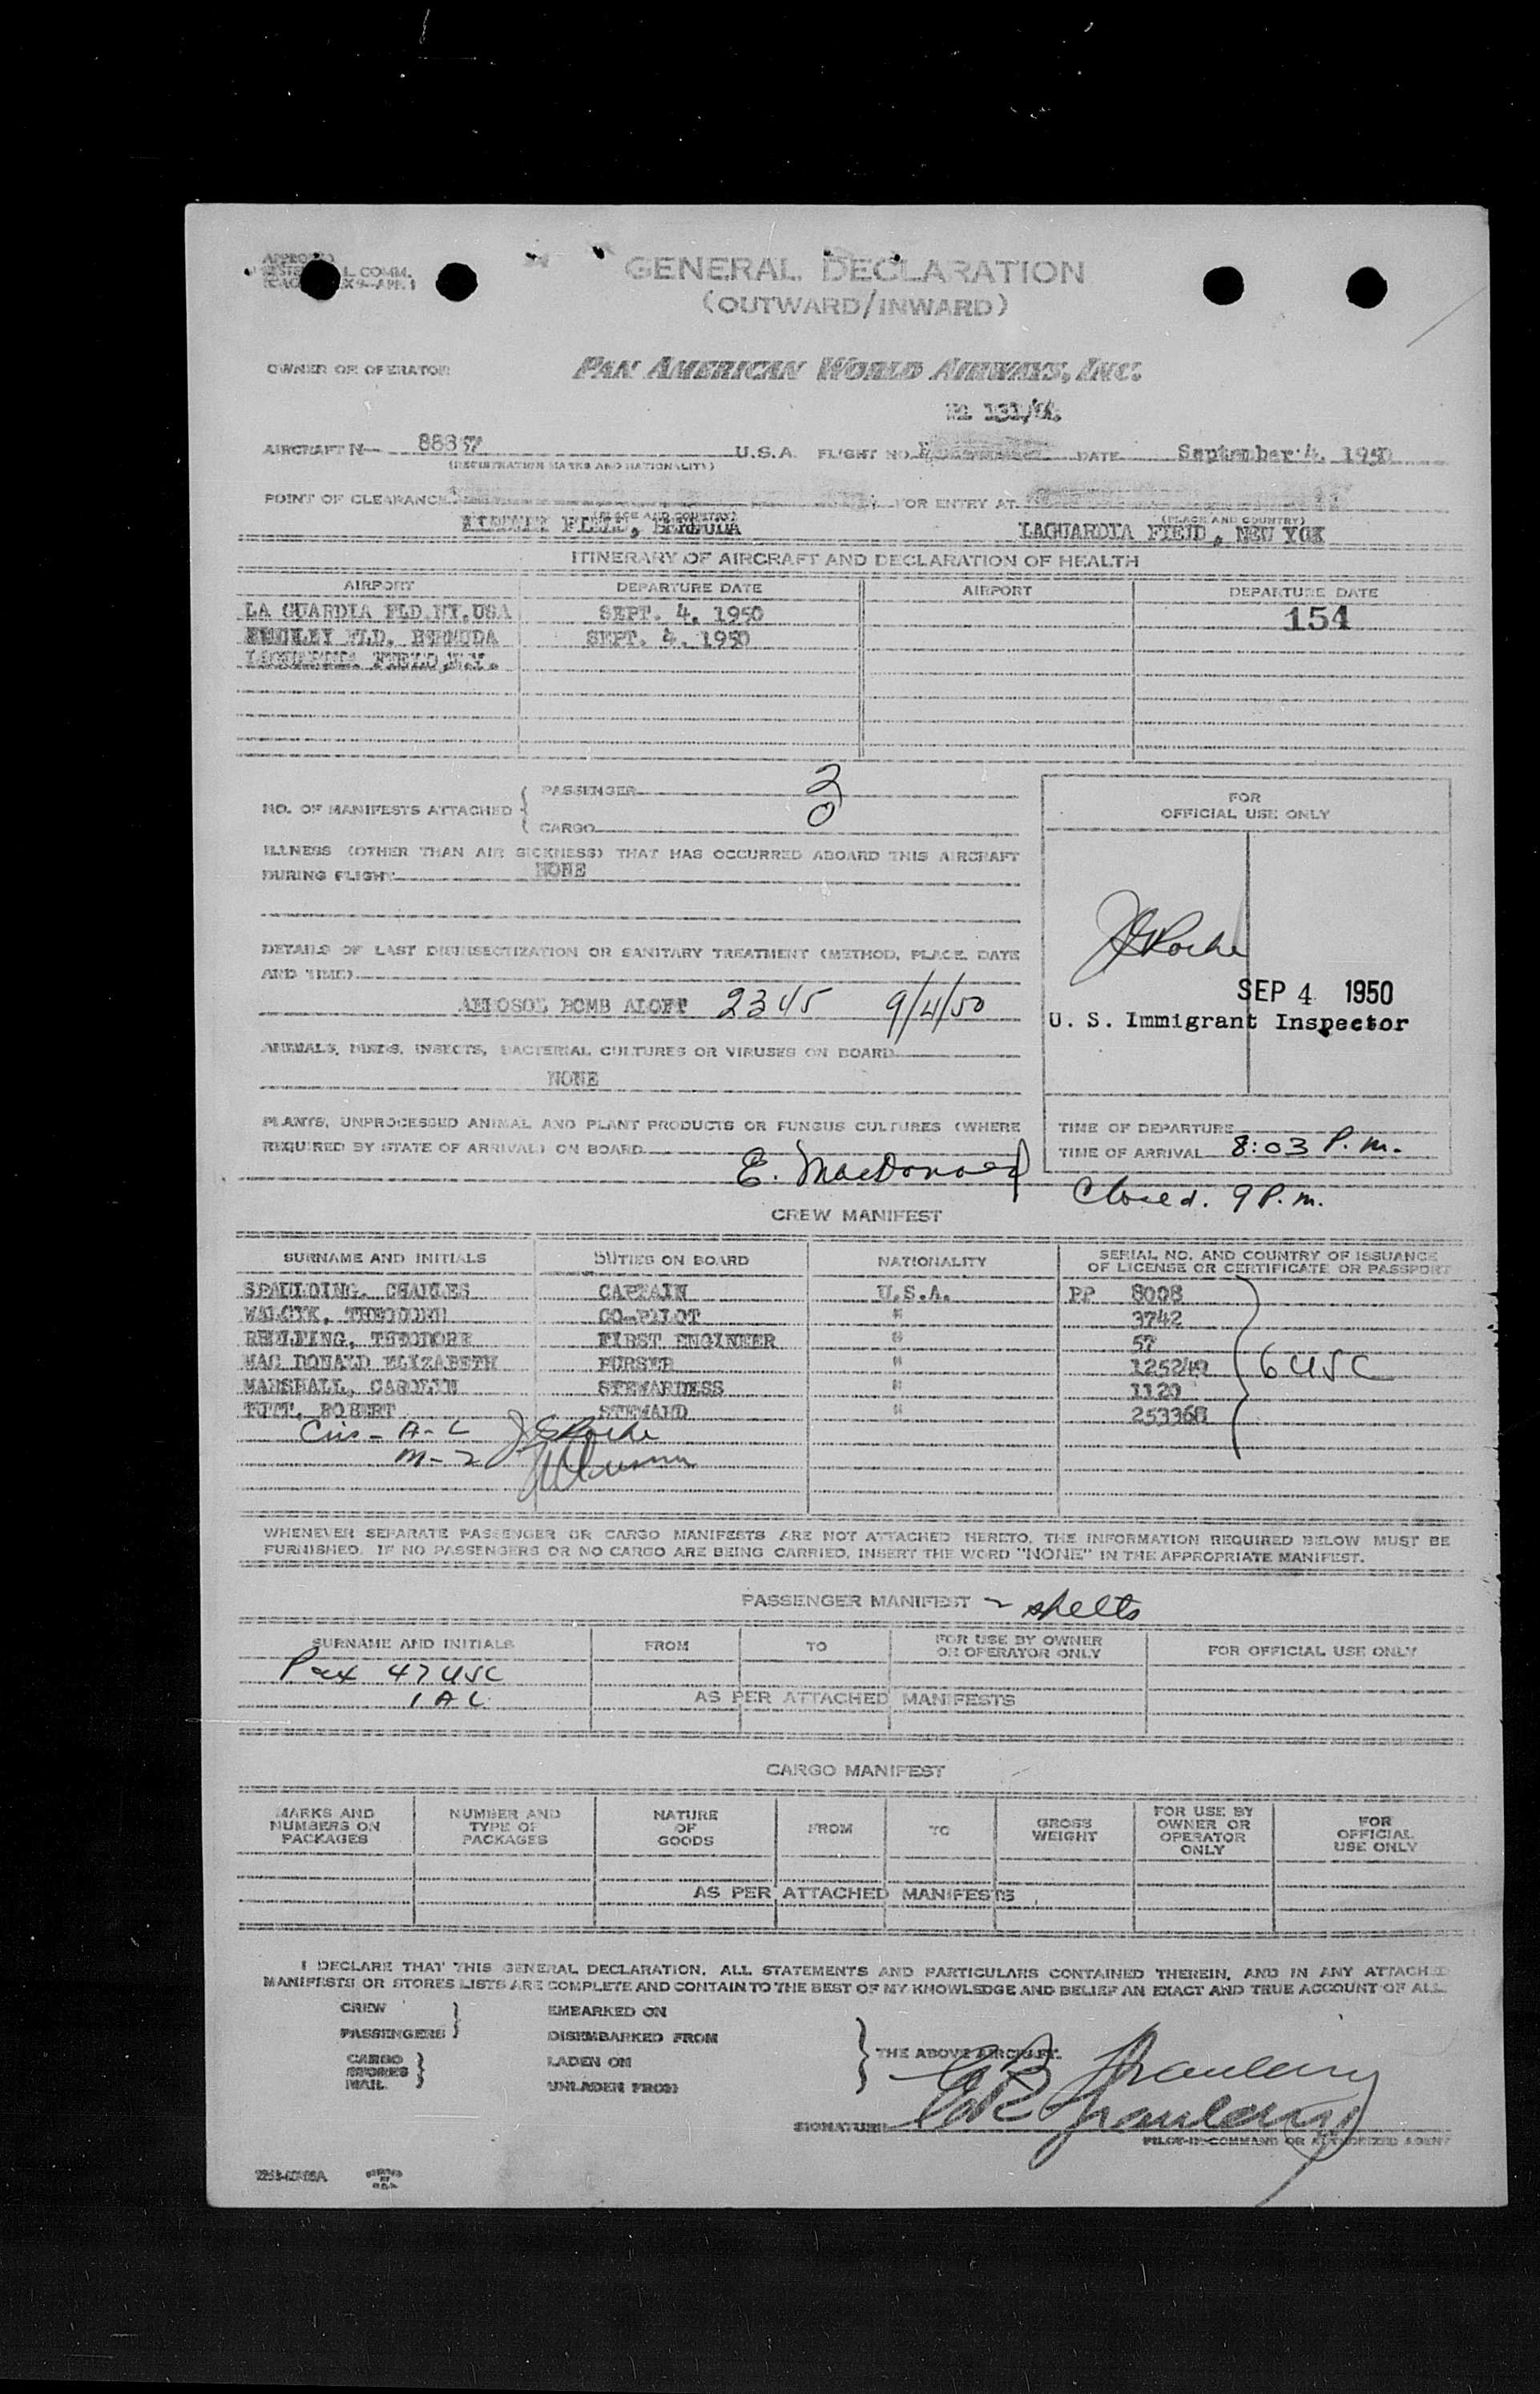 GENERAL DECLARATION
(OUTWARD/INWARD)
OWNER OR OPERATOR PAN AMERICAN WORLD AIRWAYS, INC.
AIRCRAFT N- U.S.A. FLIGHT NO. DATE September 4, 1950
(REGISTRATION MARKS AND NATIONALITY)
POINT OF CLEARANCE FOR ENTRY AT
(PLACE AND COUNTRY) (PLACE AND COUNTRY)
FIELD, BERMUDA LAGUARDIA FIELD, NEW YOK
ITINERARY OF AIRCRAFT AND DECLARATION OF HEALTH
AIRPORT DEPARTURE DATE AIRPORT DEPARTURE DATE
LA GUARDIA FLD.NY.USA SEPT. 4. 1950 154
FLD. BERMUDA SEPT. 4. 1950
LAGUARDIA FIELD,N.Y.
NO. OF MANIFESTS ATTACHED { PASSENGER 2
CARGO 0
FOR
OFFICIAL USE ONLY
ILLNESS (OTHER THAN AIR SICKNESS) THAT HAS OCCURRED ABOARD THIS AIRCRAFT
DURING FLIGHT NONE
DETAILS OF LAST DISINSECTIZATION OR SANITARY TREATMENT (METHOD, PLACE, DATE
AND TIME)
AEROSOL BOMB ALOFT 2345 9/4/50
JERoche
SEP 4 1950
U. S. Immigrant Inspector
ANIMALS, BIRDS, INSECTS, BACTERIAL CULTURES OR VIRUSES ON BOARD
NONE
PLANTS, UNPROCESSED ANIMAL AND PLANT PRODUCTS OR FUNGUS CULTURES (WHERE
REQUIRED BY STATE OF ARRIVAL) ON BOARD
E. MacDonald
TIME OF DEPARTURE
TIME OF ARRIVAL 8:03 P.m.
Closed. 9 P.m.
CREW MANIFEST
SURNAME AND INITIALS DUTIES ON BOARD NATIONALITY SERIAL NO. AND COUNTRY OF ISSUANCE
OF LICENSE OR CERTIFICATE OR PASSPORT
SPAULDING, CHARLES CAPTAIN U.S.A. PP 8008
THEODORE CO-PILOT " 3742
THEODORE FIRST ENGINEER " 57
MAC DONALD ELIZABETH PURSER " 125249 } 6 USC
MARSHALL, CAROLYN STEWARDESS " 1120
TUTT, ROBERT STEWARD " 253368
JERoche
M-2
WHENEVER SEPARATE PASSENGER OR CARGO MANIFESTS ARE NOT ATTACHED HERETO, THE INFORMATION REQUIRED BELOW MUST BE
FURNISHED. IF NO PASSENGERS OR NO CARGO ARE BEING CARRIED, INSERT THE WORD "NONE" IN THE APPROPRIATE MANIFEST.
PASSENGER MANIFEST
SURNAME AND INITIALS FROM TO FOR USE BY OWNER OR OPERATOR ONLY FOR OFFICIAL USE ONLY
Pax 47 USC
1 A C AS PER ATTACHED MANIFESTS
CARGO MANIFEST
MARKS AND NUMBERS ON PACKAGES NUMBER AND TYPE OF PACKAGES NATURE OF GOODS FROM TO GROSS WEIGHT FOR USE BY OWNER OR OPERATOR ONLY FOR OFFICIAL USE ONLY
AS PER ATTACHED MANIFESTS
I DECLARE THAT THIS GENERAL DECLARATION, ALL STATEMENTS AND PARTICULARS CONTAINED THEREIN, AND IN ANY ATTACHED
MANIFESTS OR STORES LISTS ARE COMPLETE AND CONTAIN TO THE BEST OF MY KNOWLEDGE AND BELIEF AN EXACT AND TRUE ACCOUNT OF ALL
CREW } EMBARKED ON
PASSENGERS DISEMBARKED FROM
CARGO } LADEN ON } THE ABOVE AIRCRAFT.
STORES
MAIL UNLADEN FROM
SIGNATURE
PILOT-IN-COMMAND OR AUTHORIZED AGENT